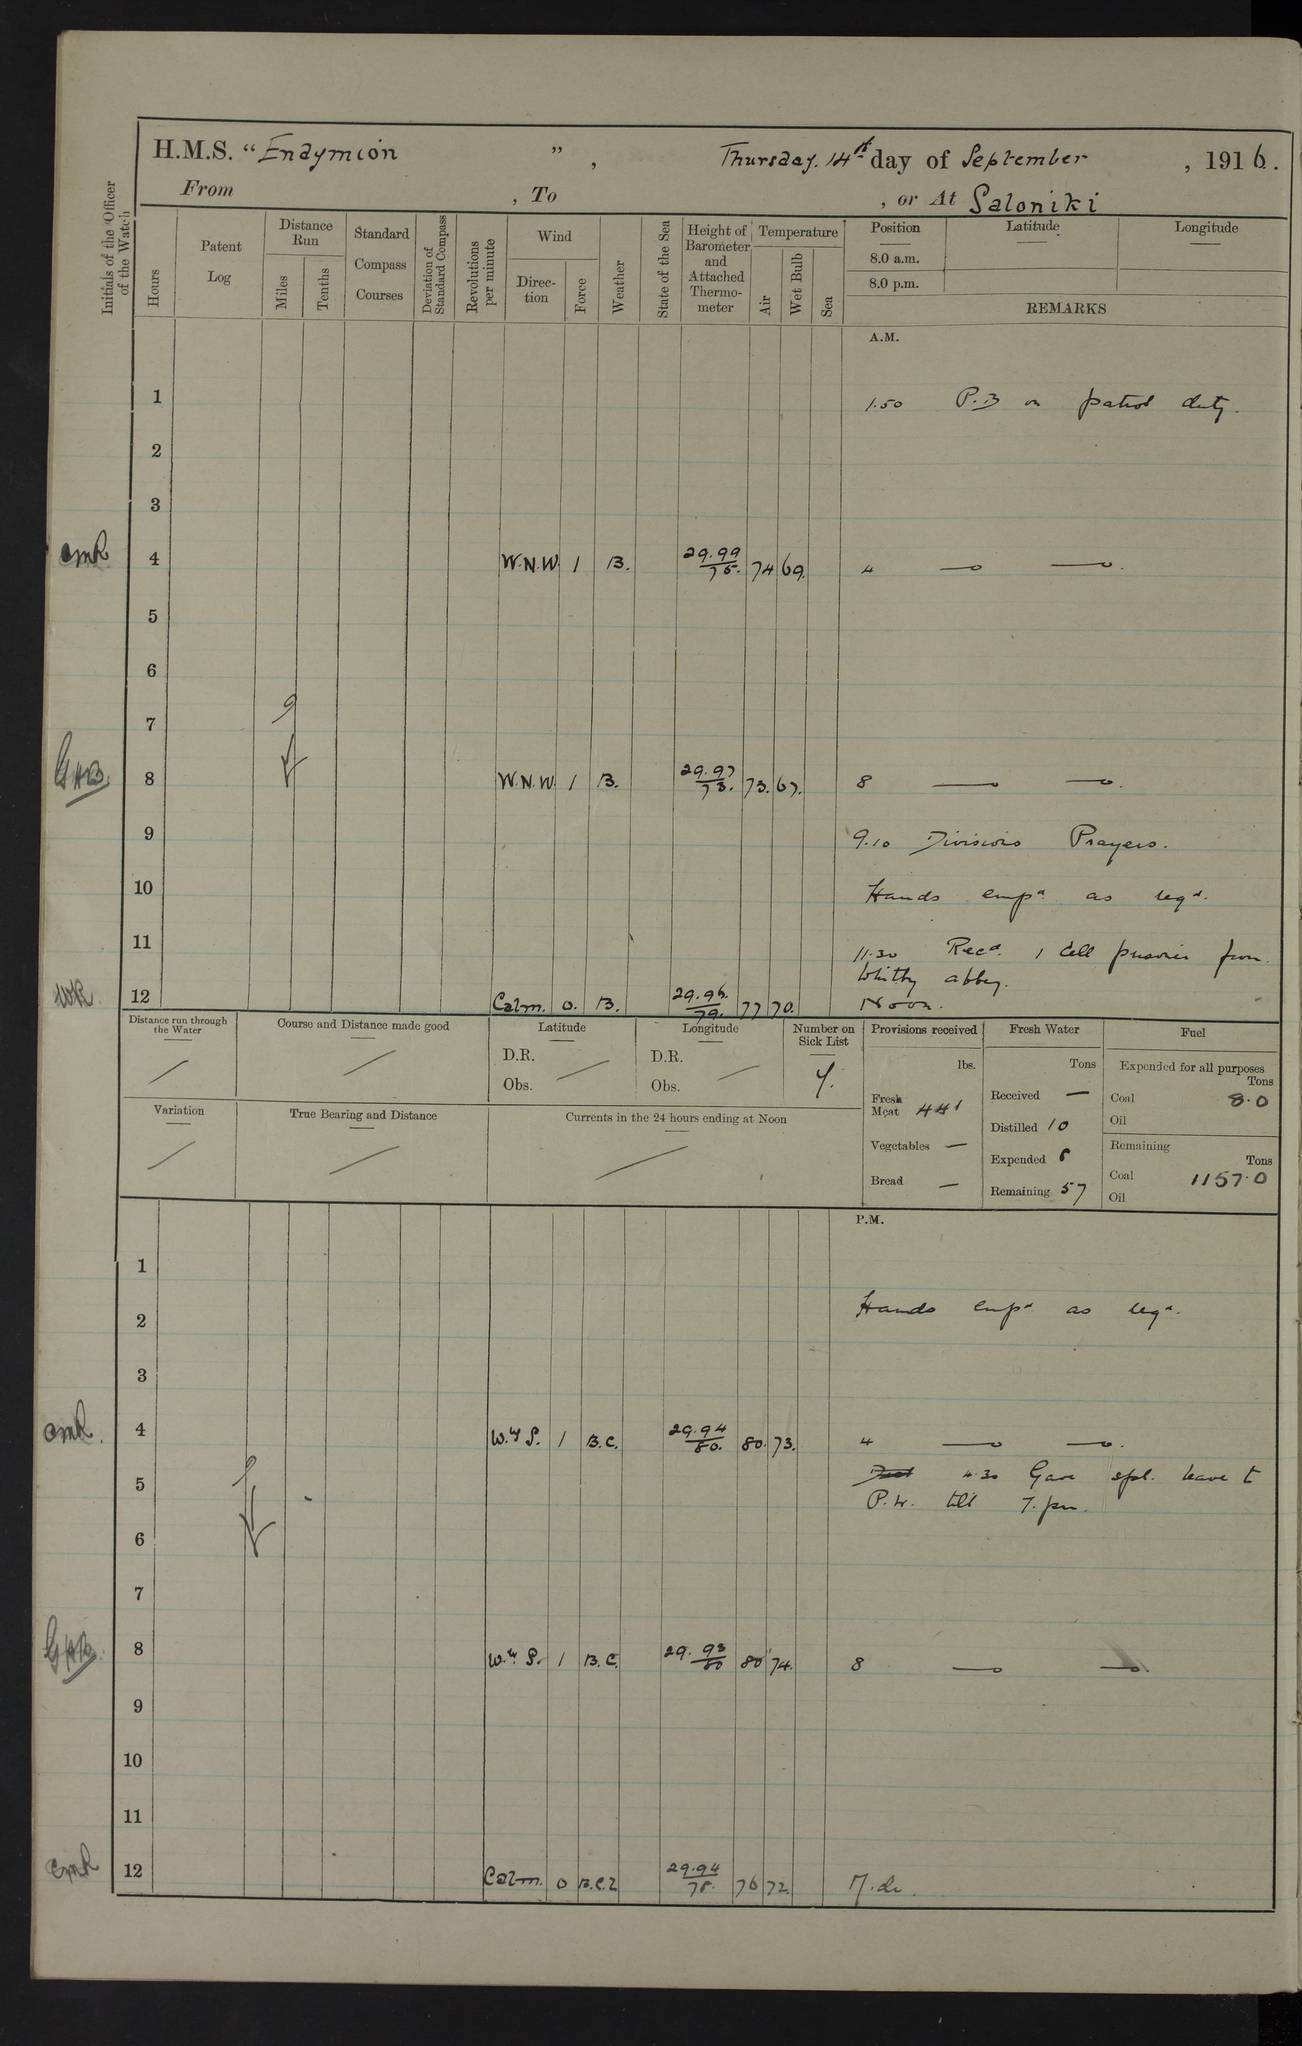 H.M.S. "Endymion", Thursday. 14th day of September, 1916.
From , To , or At Saloniki
Initials of the Officer of the Watch
Hours
Patent Log
Distance Run
Miles
Tenths
Standard Compass Courses
Deviation of Standard Compass
Revolutions per minute
Wind
Direction
Force
Weather
State of the Sea
Height of Barometer and Attached Thermometer
Temperature
Air
Wet Bulb
Sea
Position Latitude Longitude
8.0 a.m.
8.0 p.m.
REMARKS
A.M.
1 1.50 P.B on patrol duty.
2
3
4 W.N.W. 1 B. 29.99/75. 74 69. 4
5
6
7
GHB. 8 W.N.W. 1 B. 29.97/73. 73. 67. 8
9 9.10 Divisions Prayers.
10 Hands empd as reqd.
11 11.30 Recd. 1 cell prisoner from
Whitby abbey.
12 Calm. 0. B. 29.96./79. 77 70. Noon.
Distance run through the Water
Course and Distance made good
Latitude
D.R.
Obs.
Longitude
D.R.
Obs.
Number on Sick List
4.
Variation
True Bearing and Distance
Currents in the 24 hours ending at Noon
Provisions received
lbs.
Fresh Meat 441
Vegetables —
Bread —
Fresh Water
Tons
Received —
Distilled 10
Expended 8
Remaining 57
Fuel
Expended for all purposes
Tons
Coal 8.0
Oil
Remaining
Tons
Coal 1157.0
Oil
P.M.
1
2 Hands empd as reqd.
3
4 Wly S. 1 B.C. 29.94/80. 80. 73. 4
5 4.30 Gave spl. leave to
P.W. till 7. pm.
6
7
GHB. 8 Wly S. 1 B.C. 29.93/80 80 74. 8
9
10
11
12 Calm. 0 B.C.L 29.94/78. 76 72. M.dn.